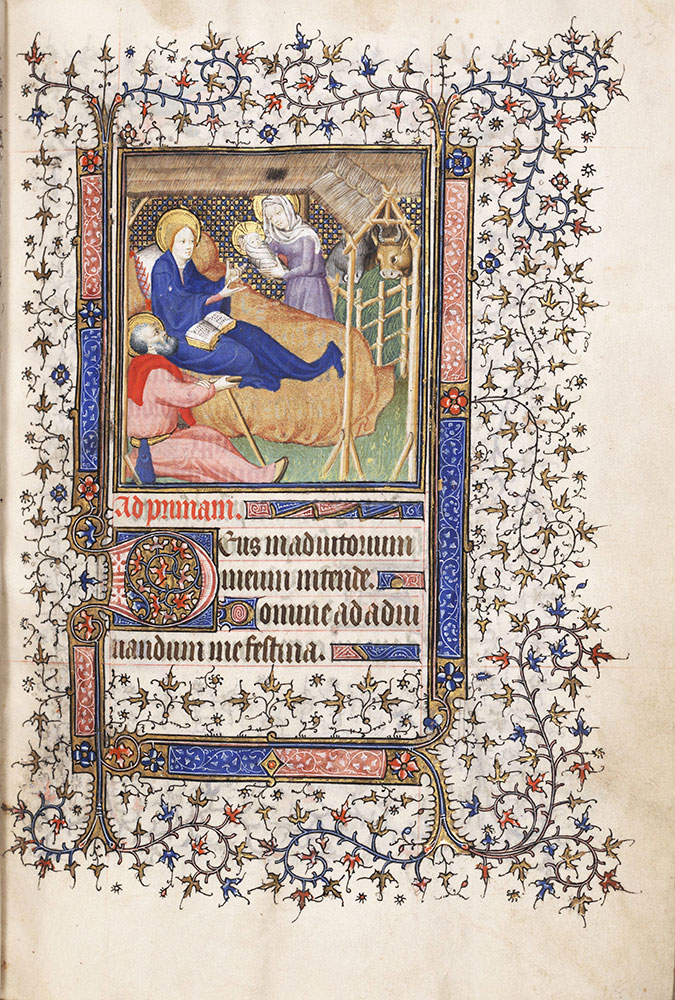 Ad primam.
Deus in adiutorium
meum intende.
Domine ad adiu
uandum me festina.